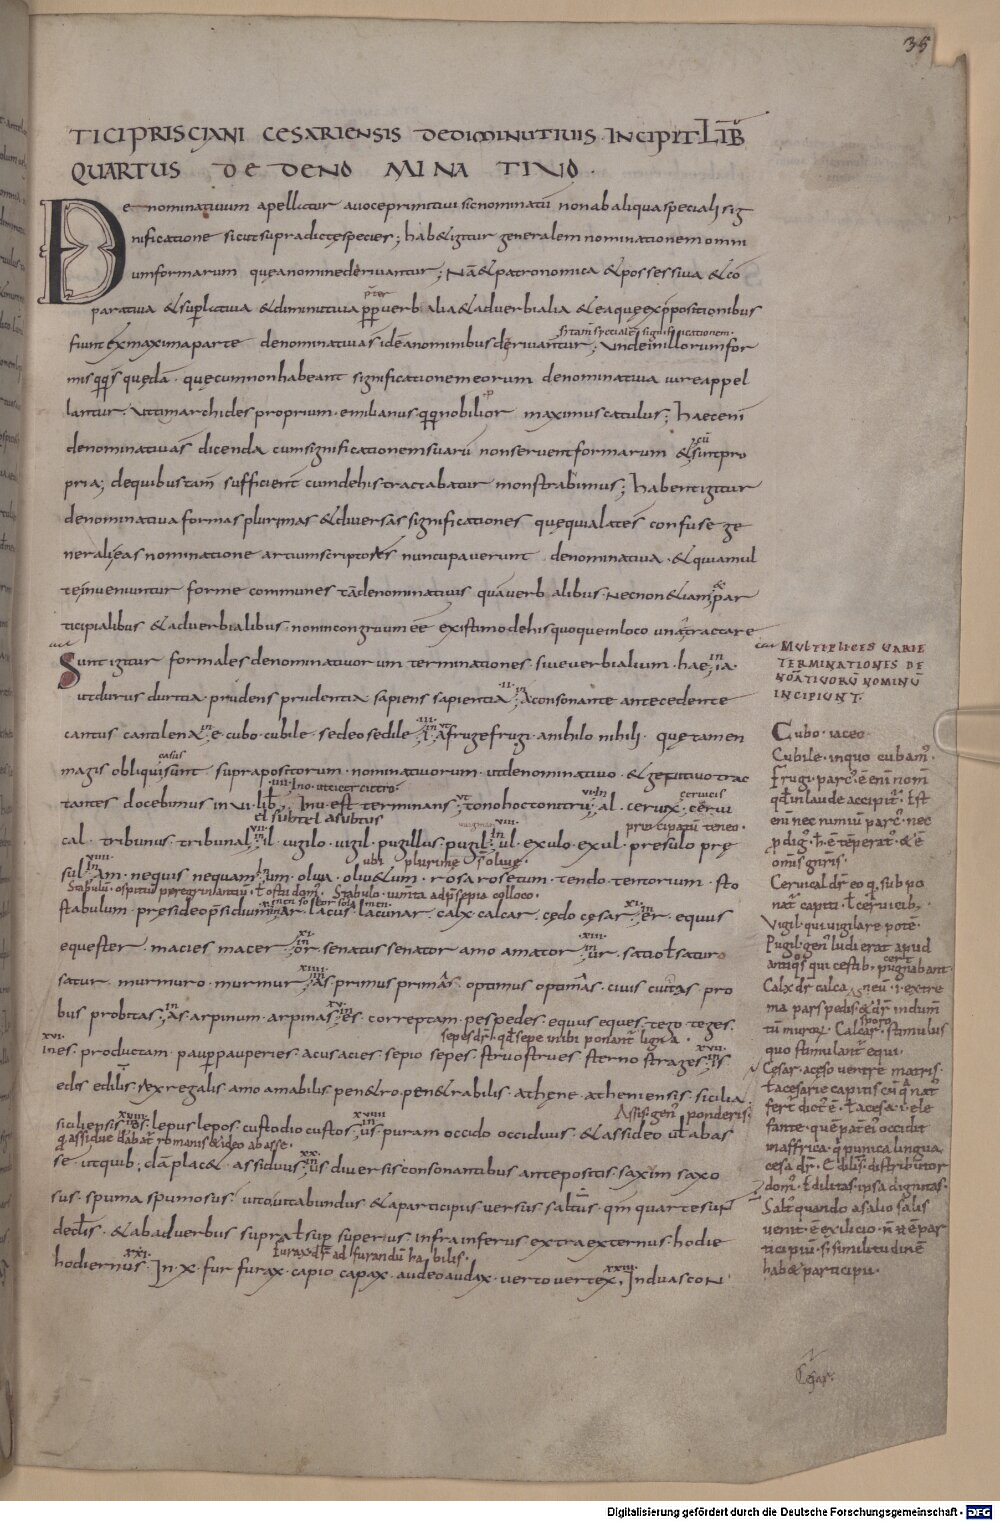 35
TICI PRISCIANI CESARIENSIS DE DIMINUTIUIS INCIPIT LIB̄
QUARTUS DE DENOMINATIUO.
De nominatiuum apellitur a uoce primitiui sic nominatū non ab aliqua speciali sig
nificatione sicut supra dictę species; hab& igitur generalem nominationem omni
um formarum quę a nomine deriuantur; Nā & patronomica & possessiua & cō
paratiua & sup̄latiua & diminutiua p̄p̄ uerbalia & aduerbialia & ea quę ex p̄positionibus
p̄ter
fiunt ex maxima parte denominatiua s̄ idē a nominibus deriuantur; Unde in illorum for
si tam̄ specialē significationem.
mis q̄q̄s quędā. quę cum non habeant significationem eorum denominatiua iure appel
lantur. Ut timarchides proprium. emilianus q̄q̄ nobilior maximus catulus; Haec enī
denominatiua s̄ dicenda cum significationem suarū non seruent formarum & sint pro
cū
pria; de quibus tam̄ sufficient̄ cum de his tractabatur monstrabimus; Habent igitur
denominatiua formas plurimas & diuersas significationes quę qui a lates confuse ge
nerali eas nominatione artium scriptores nuncupauerunt denominatiua. & quia mul
te inueniuntur forme communes tā denominatiuis quā uerbalibus. Nec non & iam par
ticipialibus & aduerbialibus non incongruum eē existimo de his quoque in loco uno tractare
Sunt igitur formales denominatiuorum terminationes siue uerbialium. hae; in ia.
MULTIPLICES UARIE
TERMINATIONES DE
NOĀTIUORŪ NOMINŪ
INCIPIUNT.
ut durus duritia. prudens prudentia sapiens sapientia; in a consonante antecedente
.II.
cantus cantilena; in e. cubo. cubile. sedeo sedile; in i. a fruge frugi. a nihilo nihili. quę tamen
.III.
magis obliqui sunt supra positorum. nominatiuorum. ut denominatiuo. & genitiuo trac
casus
tantes docebimus in VI. lib̄; In u. est terminans; ut tono hoc tonitru; in al. ceruix. cerui
ceruicis
cal. tribunus. tribunal; in il. uigilo. uigil. pugillus. pugil; in ul. exulo. exul. presulo prę
principatū teneo.
el subtel a subtus
sul; in am. nequis nequam; in um. oliua. oliu&um. rosa rosetum. tendo. tentorium. sto
ubi plurime s̄ oliue.
stabulum. presideo p̄sidium; in ar. lacus lacunar. calx calcar. cędo cęsar; in er. equus
equester. macies macer. in or. senatus senator amo amator; in ur. satio ł saturo
satur. murmuro. murmur; in as. primus primas. optimus optimas. ciuis ciuitas. pro
bus probitas; in as. arpinum. arpinas; in es. correptam. pes pedes. equus eques. tego teges.
In es. productam. paup̄ pauperies. acus acies. sepio sepes. struo strues. sterno strages; in is
edes edilis rex regalis amo amabilis pen&ro pen&rabilis. athene atheniensis. sicilia
siciliensis; in os. lepus lepos. custodio custos; in us. puram occido occiduus. & assideo ut ab as
Assis gen̄ ponderis
q̄ assidue dabat̄ romanis & ideo ab asse.
se ut quib; dā plac&. assiduus; in us diuersis consonantibus antepositis. saxim saxo
sus. spuma spumosus. uito uitabundus & a participiis uersus. saltus. qm̄ quarte sunt
declīs. & ab aduerbiis supra ł sup superius. infra inferus extra externus. hodie
furax dr̄ ad furandū habilis.
hodiernus. In x. fur furax. capio capax. audeo audax. uerto uertex. In duas con
Cubo. iaceo.
Cubile. in quo cubam̄.
Frugi. parc̄. ē enī nom̄
qd̄ in laude accipit̄. Est
enī nec nimiū parc̄. nec
pdiḡ. h̄ ē tēperat̄. & ē
om̄is gn̄ris.
Ceruical dr̄ eo q̄ sub po
nat̄ capiti. ł ceruicib;
Vigil. qui uigilare potē.
Pugil. gen̄ ludi erat apud
antiq̄s qui cestib. pugnabant.
Calx dr̄ calcaneū. i. extre
ma pars pedis & dr̄ indum̄
tū muroꝝ. Calcar. stimulus
quo stimulant̄ equi.
Cęsar. a ceso uentre matris.
ł a cesarie capitis cū q̄ nat̄
fert̄ dict̄ ē. ł a cesa. i. ele
fante. quē pat̄ ei occidit
in affrica. q̄ punica lingua
cesa dr̄. Edilis. distributor
dom̄. Edilitas. ipsa dignitas.
Salt̄ quando a salio salis
uenit. ē exilicio. n̄ ē par
ticipiū. si similitudinē
hab& participii.
Cesar.
Digitalisierung gefördert durch die Deutsche Forschungsgemeinschaft - DFG